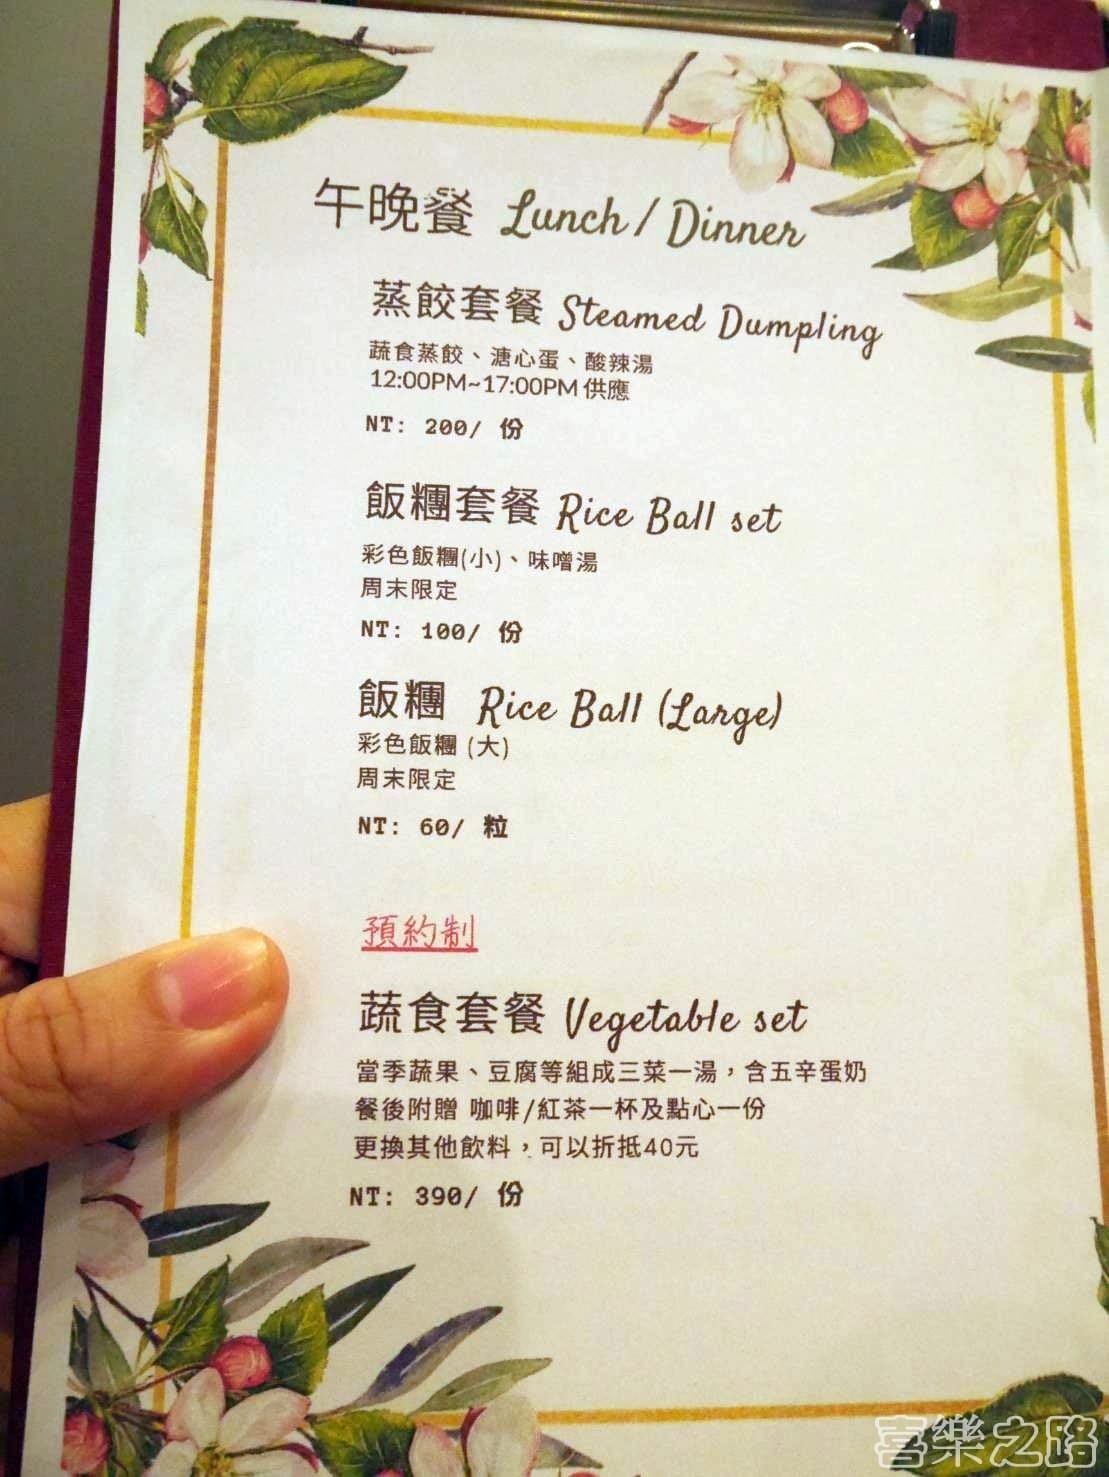 午晚餐 Lunch / Dinner
蒸餃套餐 Steamed Dumpling
蔬食蒸餃、溏心蛋、酸辣湯
12:00PM~17:00PM 供應
NT: 200/ 份
飯糰套餐 Rice Ball set
彩色飯糰(小)、味噌湯
周末限定
NT: 100/ 份
飯糰 Rice Ball (Large)
彩色飯糰 (大)
周末限定
NT: 60/ 粒
預約制
蔬食套餐 Vegetable set
當季蔬果、豆腐等組成三菜一湯，含五辛蛋奶
餐後附贈 咖啡/紅茶一杯及點心一份
更換其他飲料，可以折抵40元
NT: 390/ 份
喜樂之路